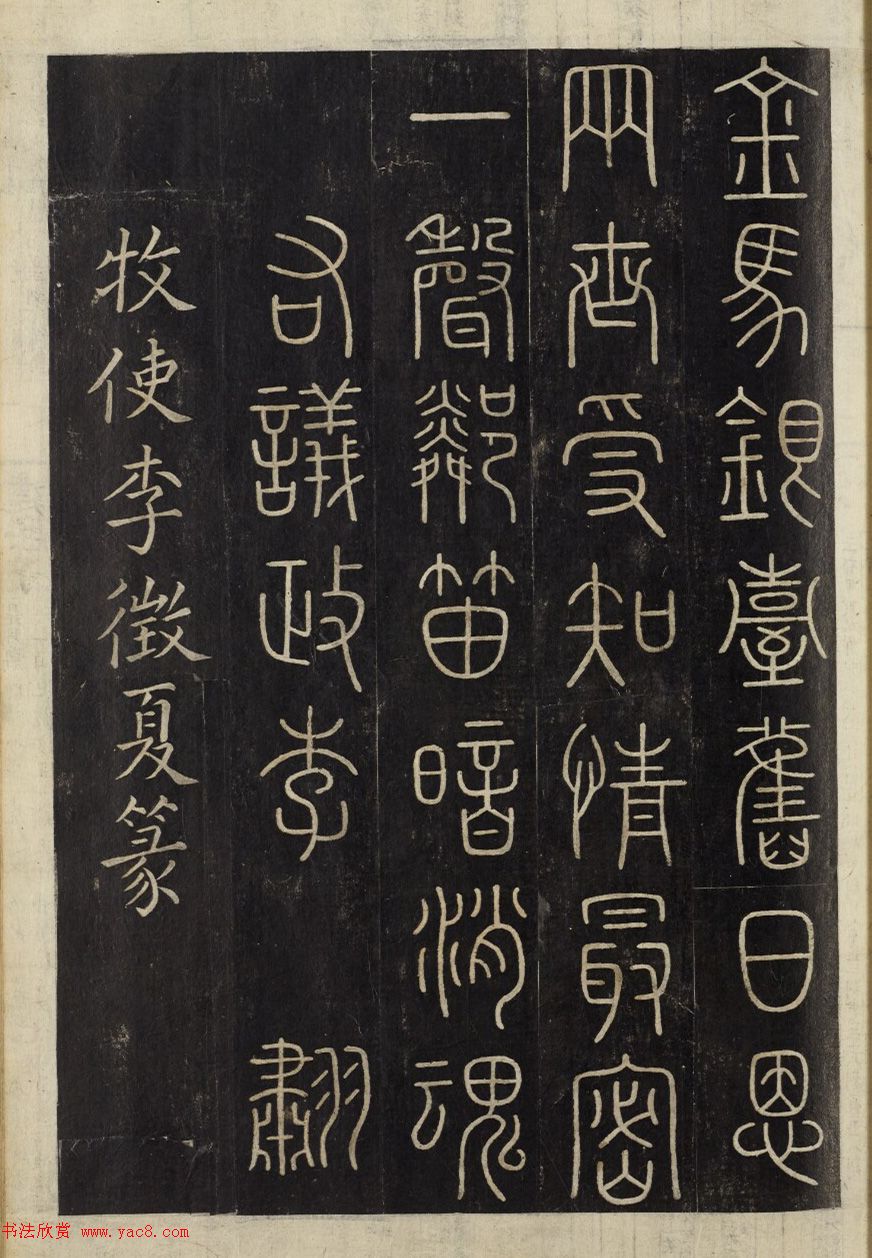 金馬銀臺舊日恩
兩世受知情最密
一聲鄰笛暗消魂
右議政李䎘
牧使李徵夏篆
书法欣赏 www.yac8.com